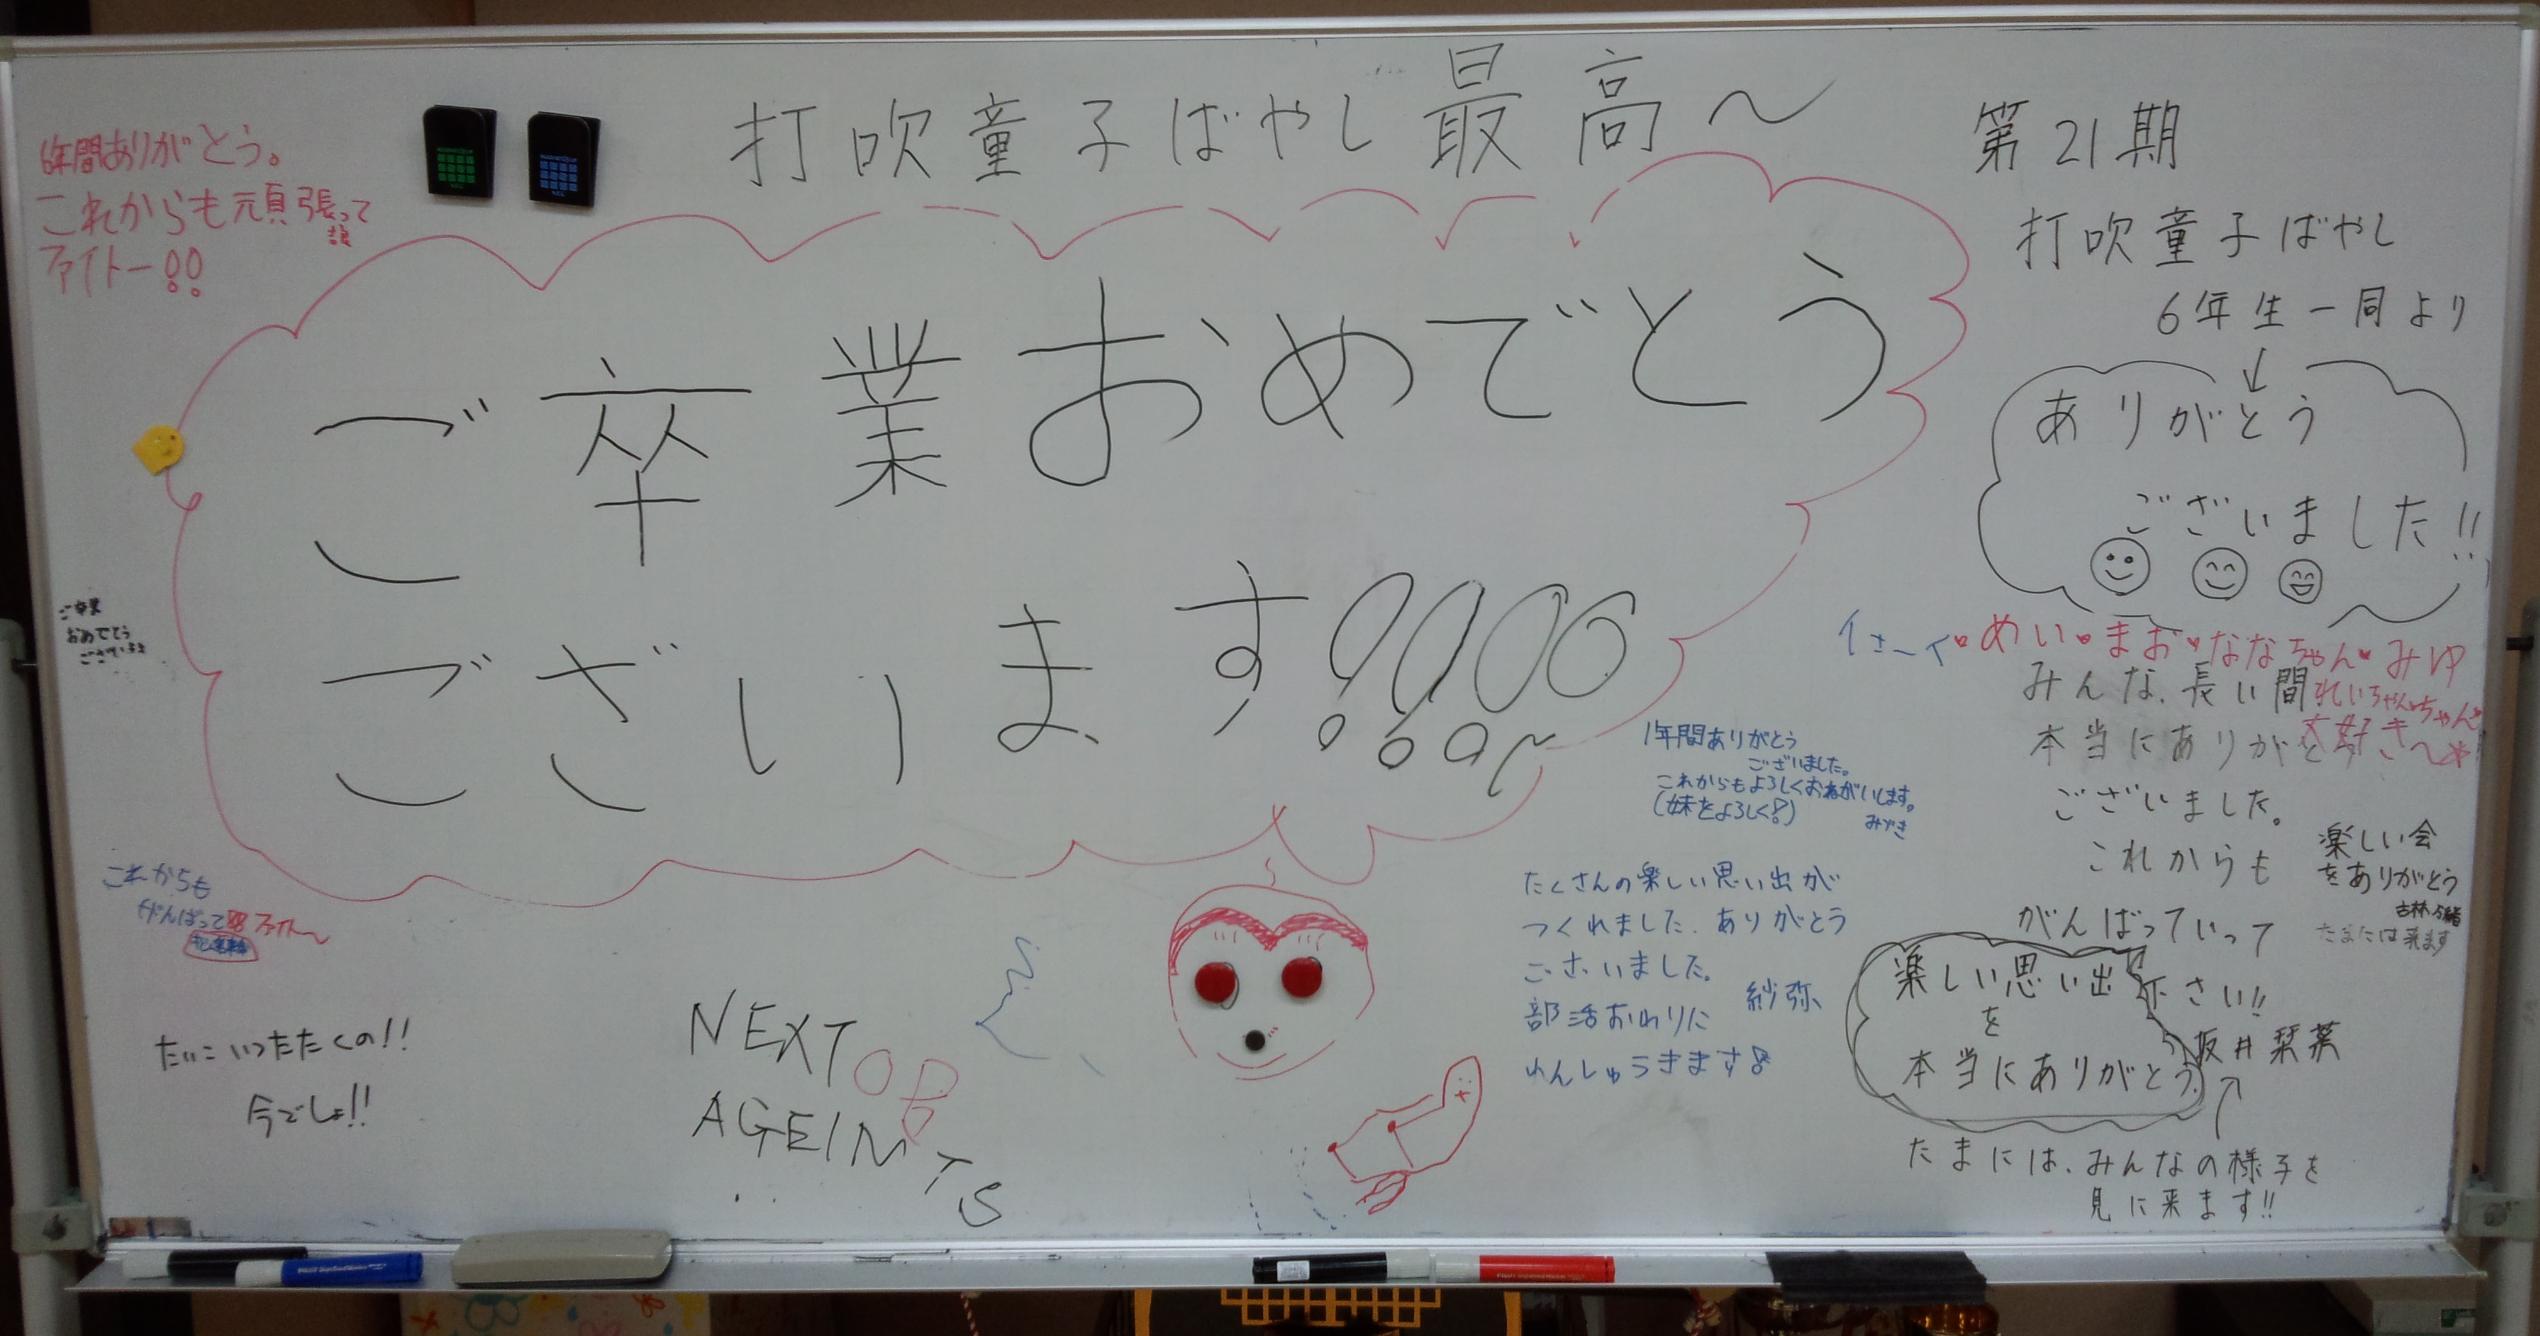 打吹童子ばやし最高〜
6年間ありがとう。
これからも頑張って
ファイトー!!
ご卒業おめでとう
ございます!!!!
第21期
打吹童子ばやし
6年生一同より
ありがとう
ございました!!
ご卒業
おめでとう
ございます
めい・まお・ななちゃん・みゆ
大好き〜
みんな、長い間
本当にありがとう
ございました。
これからも
がんばっていって
下さい!!
坂井栞菜
1年間ありがとう
ございました。
これからもよろしくおねがいします。
(妹をよろしく!)
みずき
楽しい会
をありがとう
たまには来ます
たくさんの楽しい思い出が
つくれました。ありがとう
ございました。
紗弥
部活おわりに
れんしゅうきます!
楽しい思い出
を
本当にありがとう
たまには、みんなの様子を
見に来ます!!
これからも
がんばって ファイト〜
たいこいつたたくの!!
今でしょ!!
NEXT
OB
AGEINTS